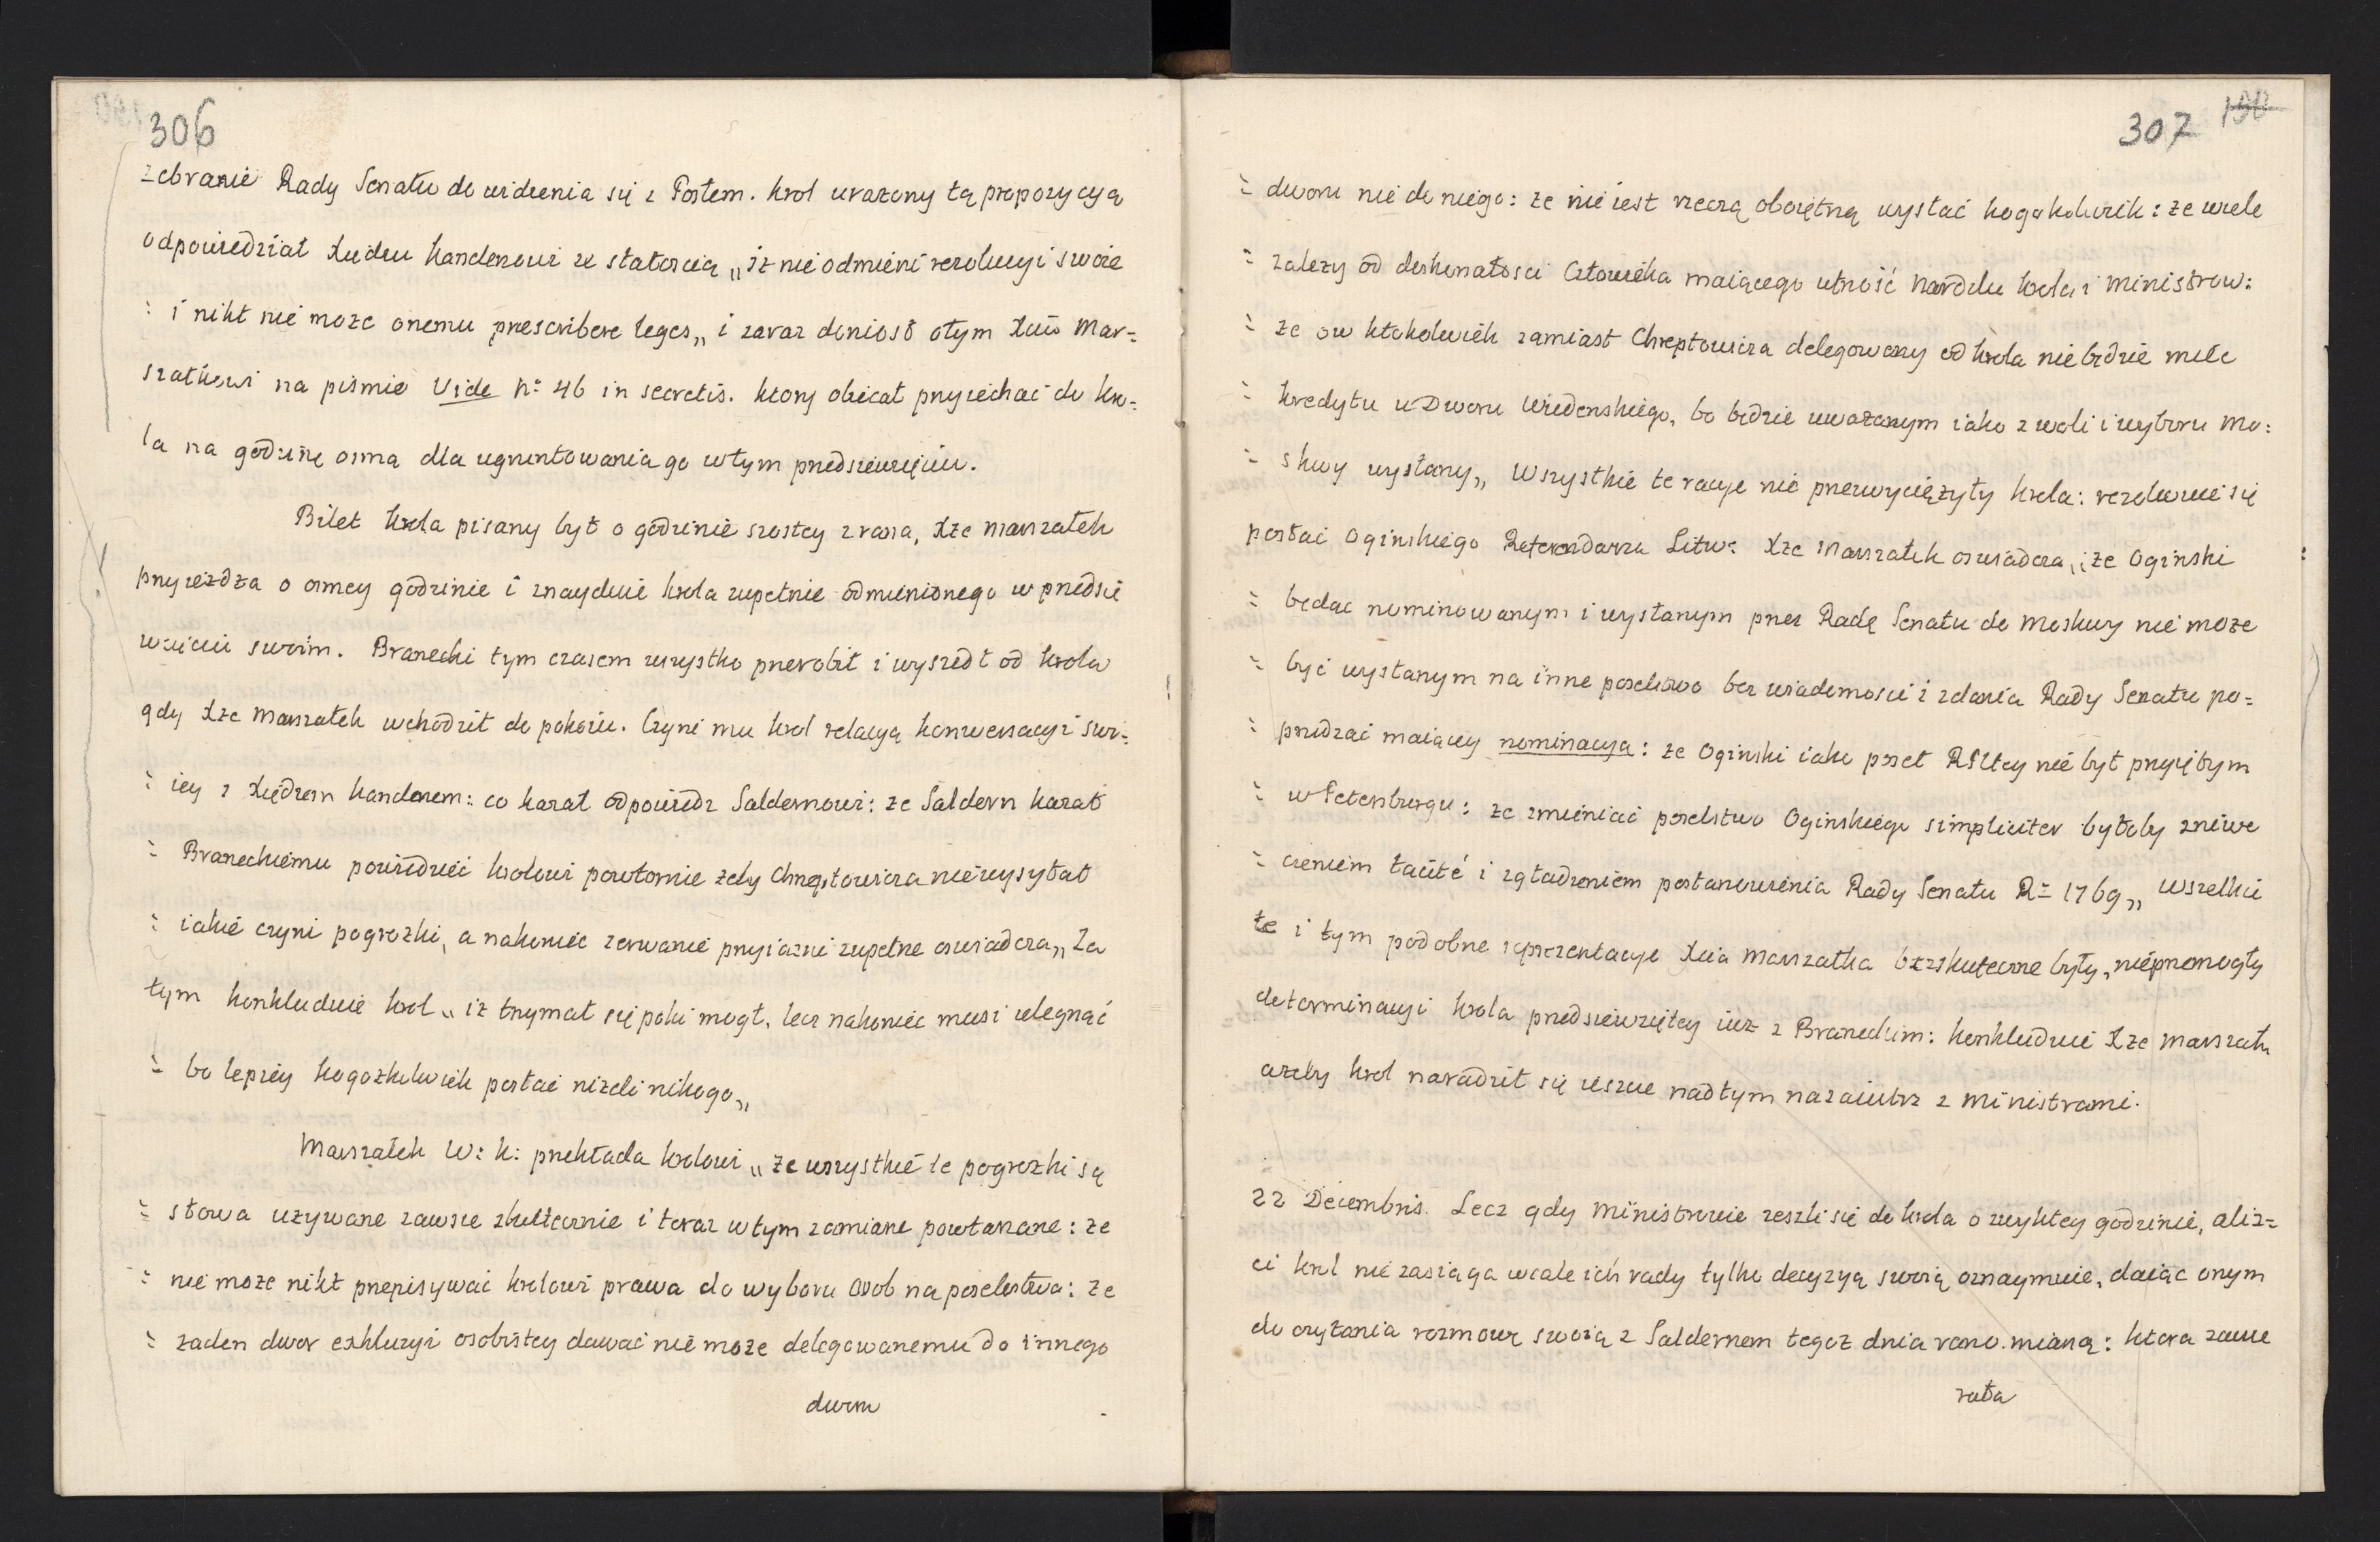 306
zebranie Rady Senatu do widzenia się z Posłem. Krol urażony tą propozycyą
odpowiedział Xiędzu Kandenowi ze statoscią „iż nie odmieni rezolucyi swoie
: i nikt nie może onemu prescribere leges„ i zaraz doniosł otym Xciu Mar=
szałkowi na piśmie Vide No 46 in secretis. ktory obiecał przyiechać do Kro=
la na godzinę osmą dla ugruntowania go wtym przedsięwzięciu.
Bilet Krola pisany był o godzinie szostey zrana, Xże Marszałek
przyieżdża o osmey godzinie i znayduie Krola zupełnie odmienionego w przedsię
wzięciu swoim. Branecki tym czasem wszystko przerobił i wyszedł od Krola
gdy Xże Marszałek wchodził do pokoiu. Czyni mu Krol relacyą konwersacyi swo=
: iey z Xiędzem Kandenem: co kazał odpowiedz Saldernowi: że Saldern kazał
: Braneckiemu powiedzieć Krolowi powtornie żeby Chreptowicza nie wysyłał
: iakie czyni pogrożki, a nakoniec zerwanie przyiazni zupełne oswiadcza„ Za
tym konkluduie Krol „iż trzymał się poki mogł, lecz nakoniec musi ulegnąć
: bo lepiey kogożkolwiek posłać niżeli nikogo„
Marszałek W: K: przekłada Krolowi „że wszystkie te pogrożki są
: słowa używane zawsze zkutecznie i teraz wtym zamiarze powtarzane: że
: nie może nikt przepisywać Krolowi prawa do wyboru osob na poselstwa: że
: żaden dwor exkluzyi osobistey dawać nie może delegowanemu do innego
dworu
307 190
: dworu nie do niego: że nie iest rzeczą oboiętną wysłać kogokolwiek: że wiele
: zależy od doskonałosci Człowieka maiącego ufność Narodu Krola i Ministrow:
: że ow ktokolwiek zamiast Chreptowicza delegowany od Krola nie będzie miec
: kredytu u Dworu Wiedenskiego, bo będzie uważanym iako z woli i wyboru Mo=
: skwy wysłany„ Wszystkie te racye nie przewyciężyły Krola: rezolwuie się
posłać Oginskiego Referendarza Litw: Xże Marszałek oswiadcza, „że Oginski
: będac nominowanym i wysłanym przez Radę Senatu do Moskwy nie może
: być wysłanym na inne poselstwo bez wiadomosci i zdania Rady Senatu po=
: przedzać maiącey nominacya: że Oginski iako poseł RPltey nie był przyiętym
: w Petersburgu: że zmieniać poselstwo Oginskiego simpliciter byłoby zniwe
: czeniem tacité i zgładzeniem postanowienia Rady Senatu R= 1769„ Wszelkie
te i tym podobne reprezentacye Xcia Marszałka bezskuteczne były, nieprzemogły
determinacyi Krola przedsięwziętey iuż z Braneckim: konkluduie Xże Marszałk
ażeby Krol naradził się ieszcze nad tym nazaiutrz z Ministrami.
22 Decembris. Lecz gdy Ministrowie zeszli się do Krola o zwykłey godzinie, aliz=
ci Krol nie zasiąga wcale ich rady tylko decyzyą swoią oznaymuie, daiąc onym
do czytania rozmowę swoią z Saldernem tegoż dnia rano mianą: ktora zawie
rała